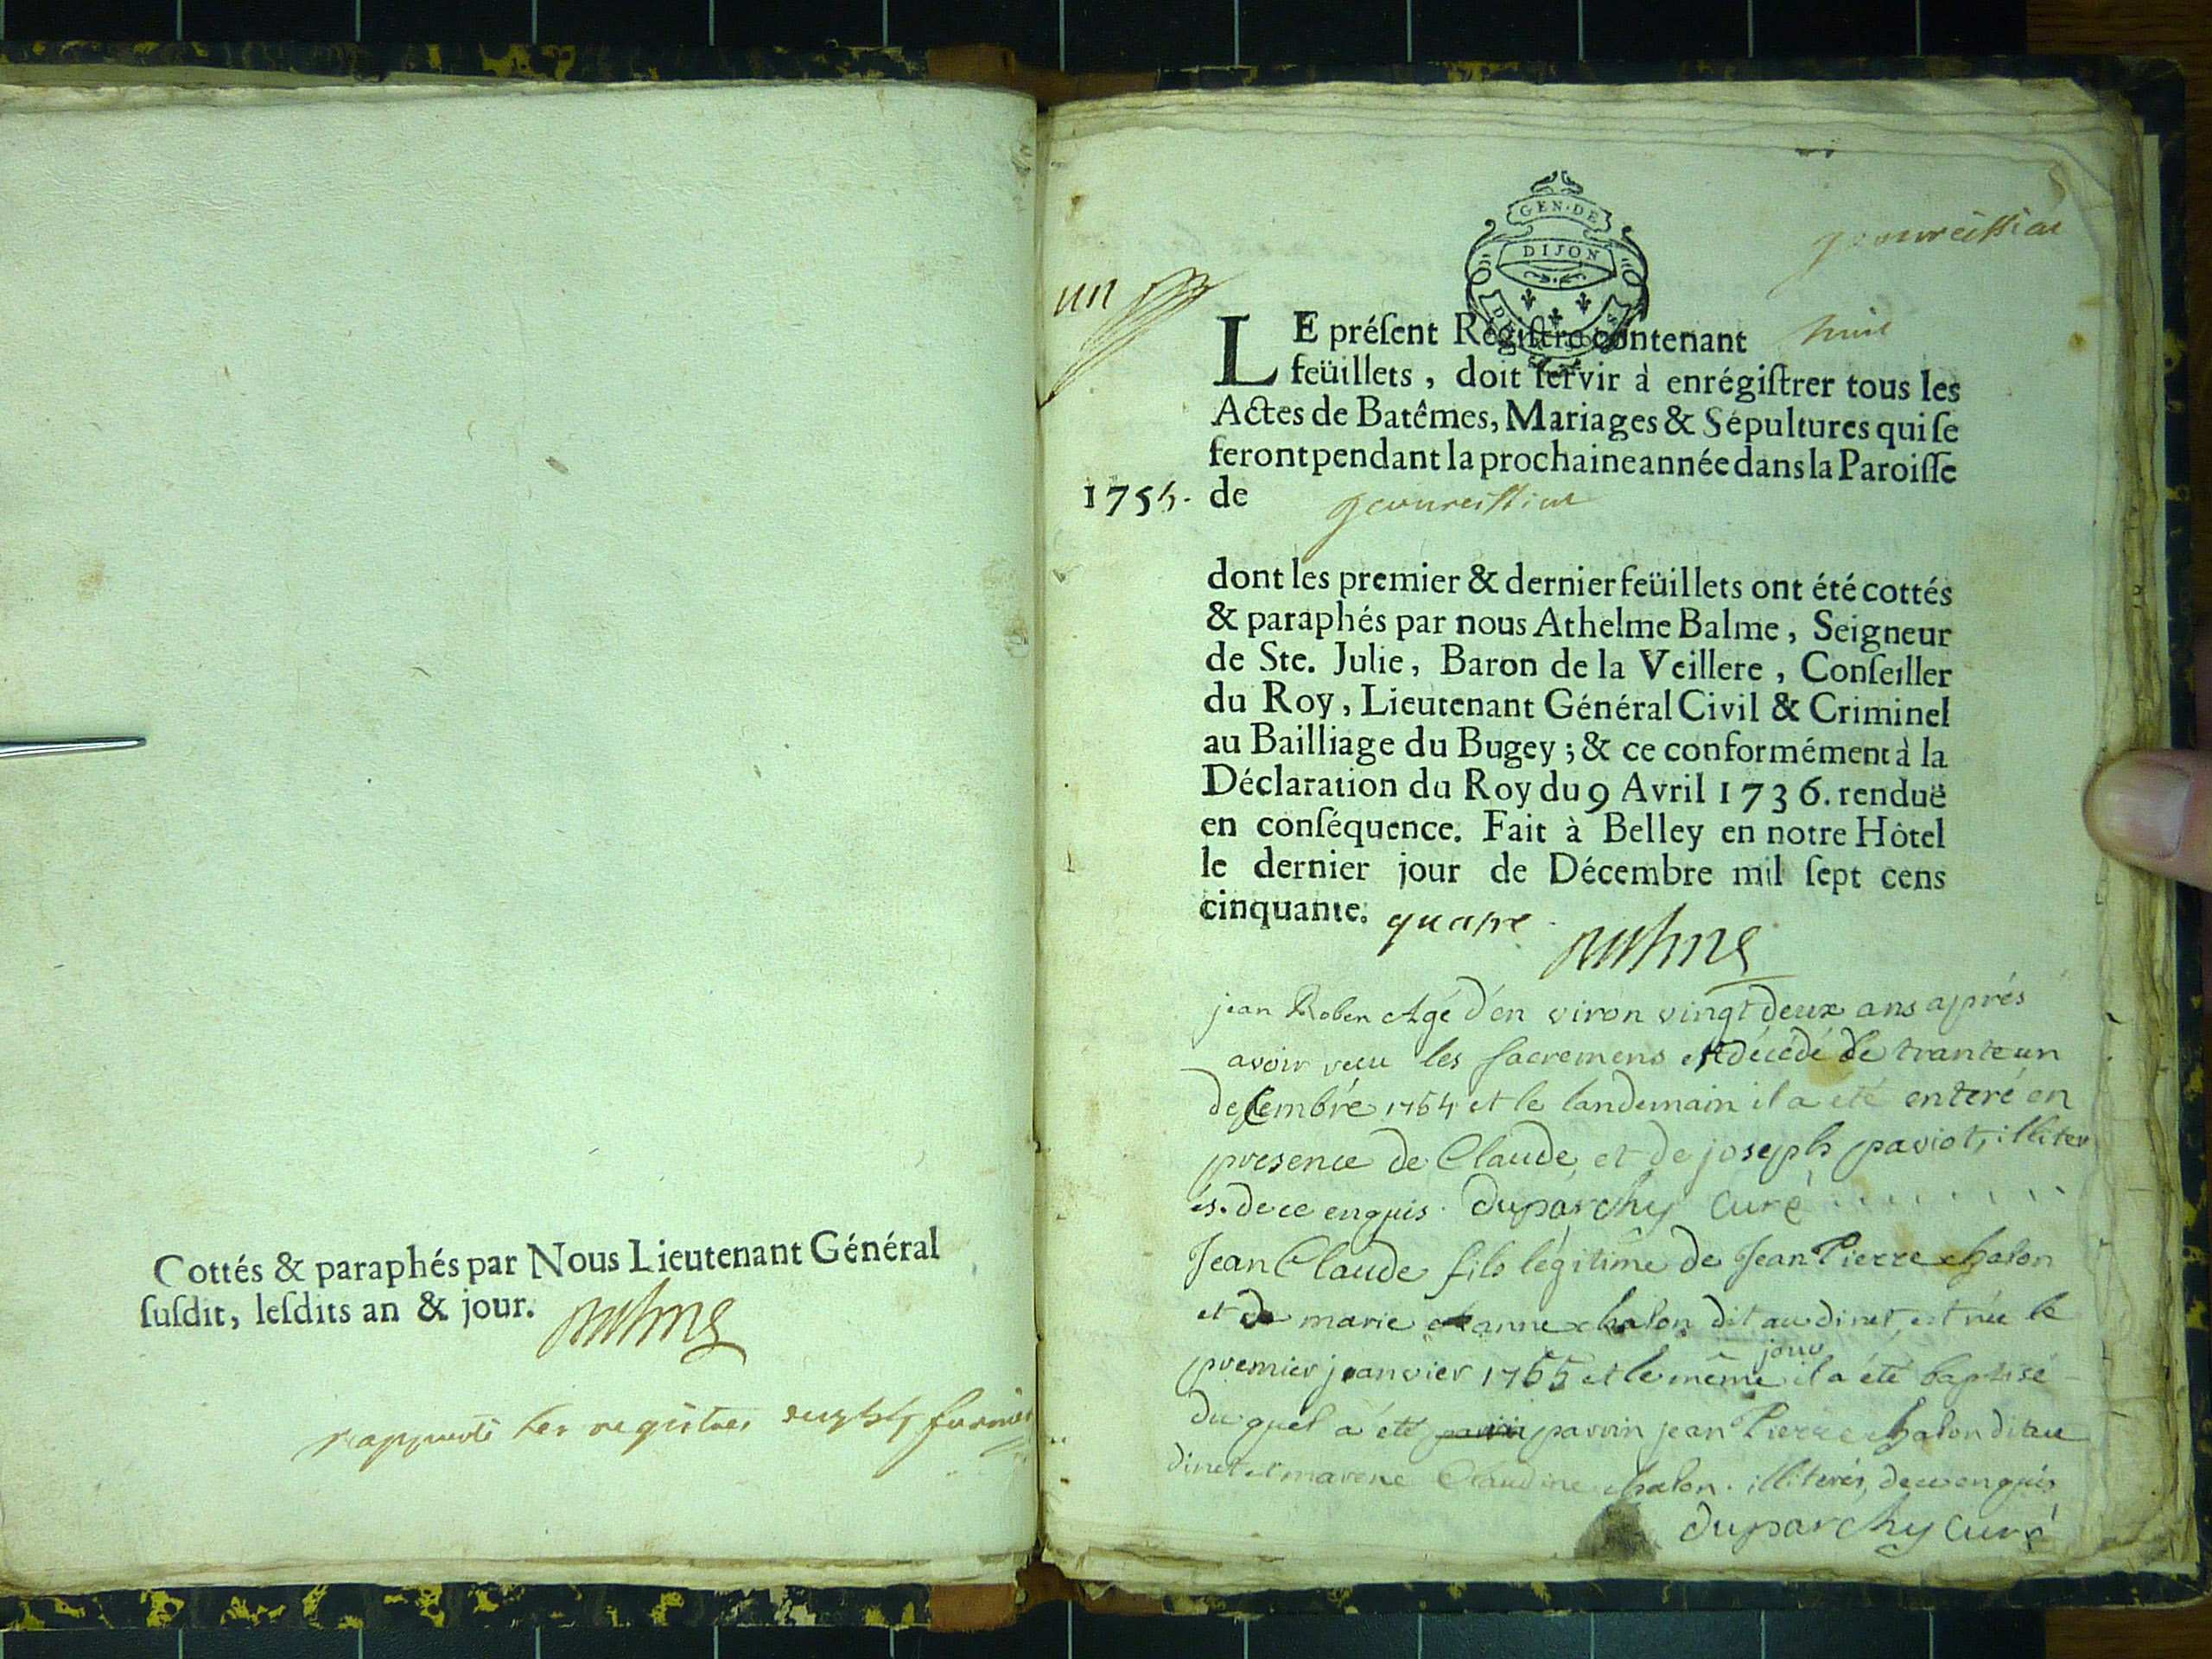 Cottés & paraphés par Nous Lieutenant Général
ſuſdit, leſdits an & jour.
GEN·DE
DIJON
un
huit
LE préſent Régiſtre contenant
feüillets, doit ſervir à enrégiſtrer tous les
Actes de Batêmes, Mariages & Sépultures qui ſe
feront pendant la prochaine année dans la Paroiſſe
1755. de
dont les premier & dernier feüillets ont été cottés
& paraphés par nous Athelme Balme, Seigneur
de Ste. Julie, Baron de la Veillere, Conſeiller
du Roy, Lieutenant Général Civil & Criminel
au Bailliage du Bugey; & ce conformément à la
Déclaration du Roy du 9 Avril 1736. renduë
en conſéquence. Fait à Belley en notre Hôtel
le dernier jour de Décembre mil ſept cens
cinquante. quatre
jean Roben Agé d'en viron vingt deux ans aprés
avoir recu les sacremens est décédé le trante un
decembre 1754 et le landemain il a été enteré en
presence de Claude et de joseph paviot, illiter
és. de ce enquis. duparchy Curé
Jean Claude fils légitime de Jean Pierre chalon
et de marie anne chalon dit au dinet, est née le
premier janvier 1755 et le même jour il a été baptisé
du quel a été parin jean Pierre chalon dit au
dinet et marene Claudine chalon. illiterés, de ce enquis
duparchy curé